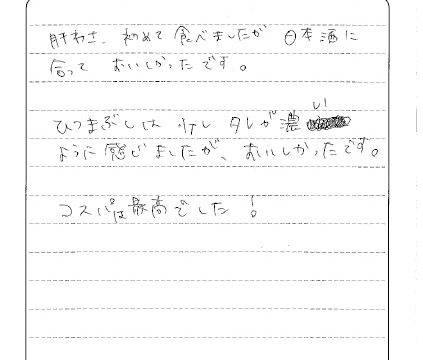 肝わさ、初めて食べましたが日本酒に
合っておいしかったです。
ひつまぶしは少しタレが濃い
ように感じましたが、おいしかったです。
コスパは最高でした!